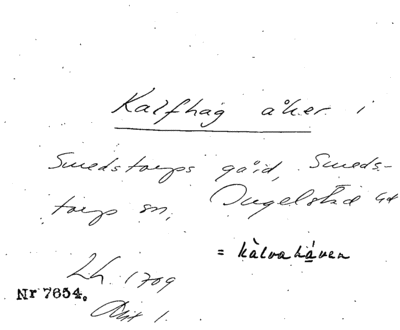 Kalfhag åker i
Smedstorps gård, Smeds-
torp sn, Ingelstad hd
= kàlvahåven
Lh. 1709
Nr 7654.
1.